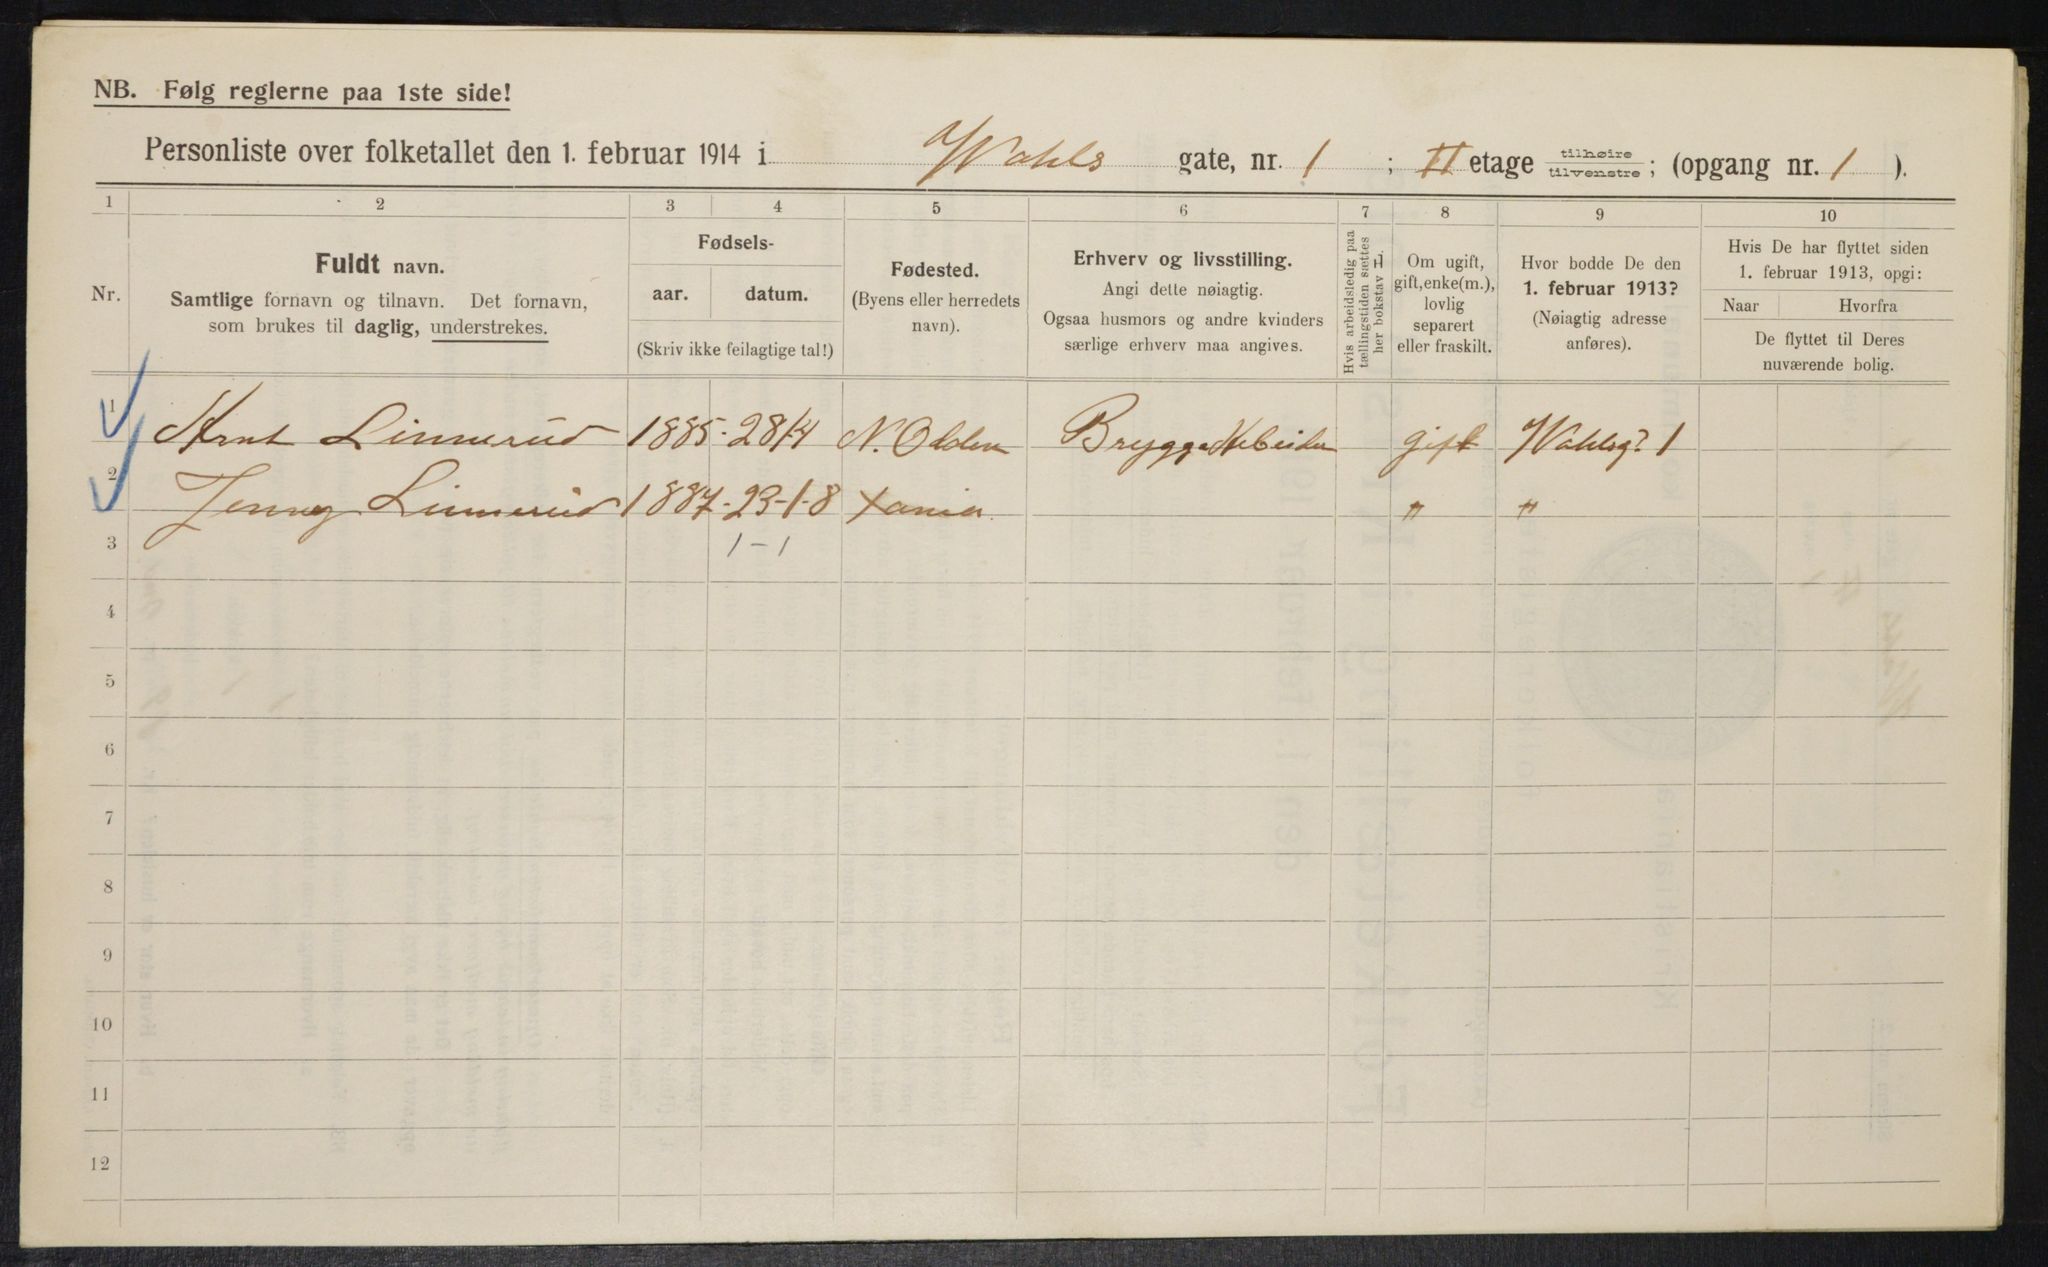 NB. Følg reglerne paa 1ste side!
Personliste over folketallet den 1. februar 1914 i Wahls gate, nr. 1 ; II etage tilhøire/tilvenstre; (opgang nr. 1 ).
1 2 3 4 5 6 7 8 9 10
Nr.
Fuldt navn.
Samtlige fornavn og tilnavn. Det fornavn,
som brukes til daglig, understrekes.
Fødsels-
aar. datum.
(Skriv ikke feilagtige tal!)
Fødested.
(Byens eller herredets
navn).
Erhverv og livsstilling.
Angi dette nøiagtig.
Ogsaa husmors og andre kvinders
særlige erhverv maa angives.
Hvis arbeidsledig paa
tællingstiden sættes
her bokstav L.
Om ugift,
gift, enke(m.),
lovlig
separert
eller fraskilt.
Hvor bodde De den
1. februar 1913?
(Nøiagtig adresse
anføres).
Hvis De har flyttet siden
1. februar 1913, opgi:
Naar Hvorfra
De flyttet til Deres
nuværende bolig.
1 Arnt Linnerud 1885 - 28/4 N. Odden Brygge Arbeider gift Wahlsg? 1
2 Jenny Linnerud 1887 - 23-1-8 Xania. " "
3 1-1
4
5
6
7
8
9
10
11
12